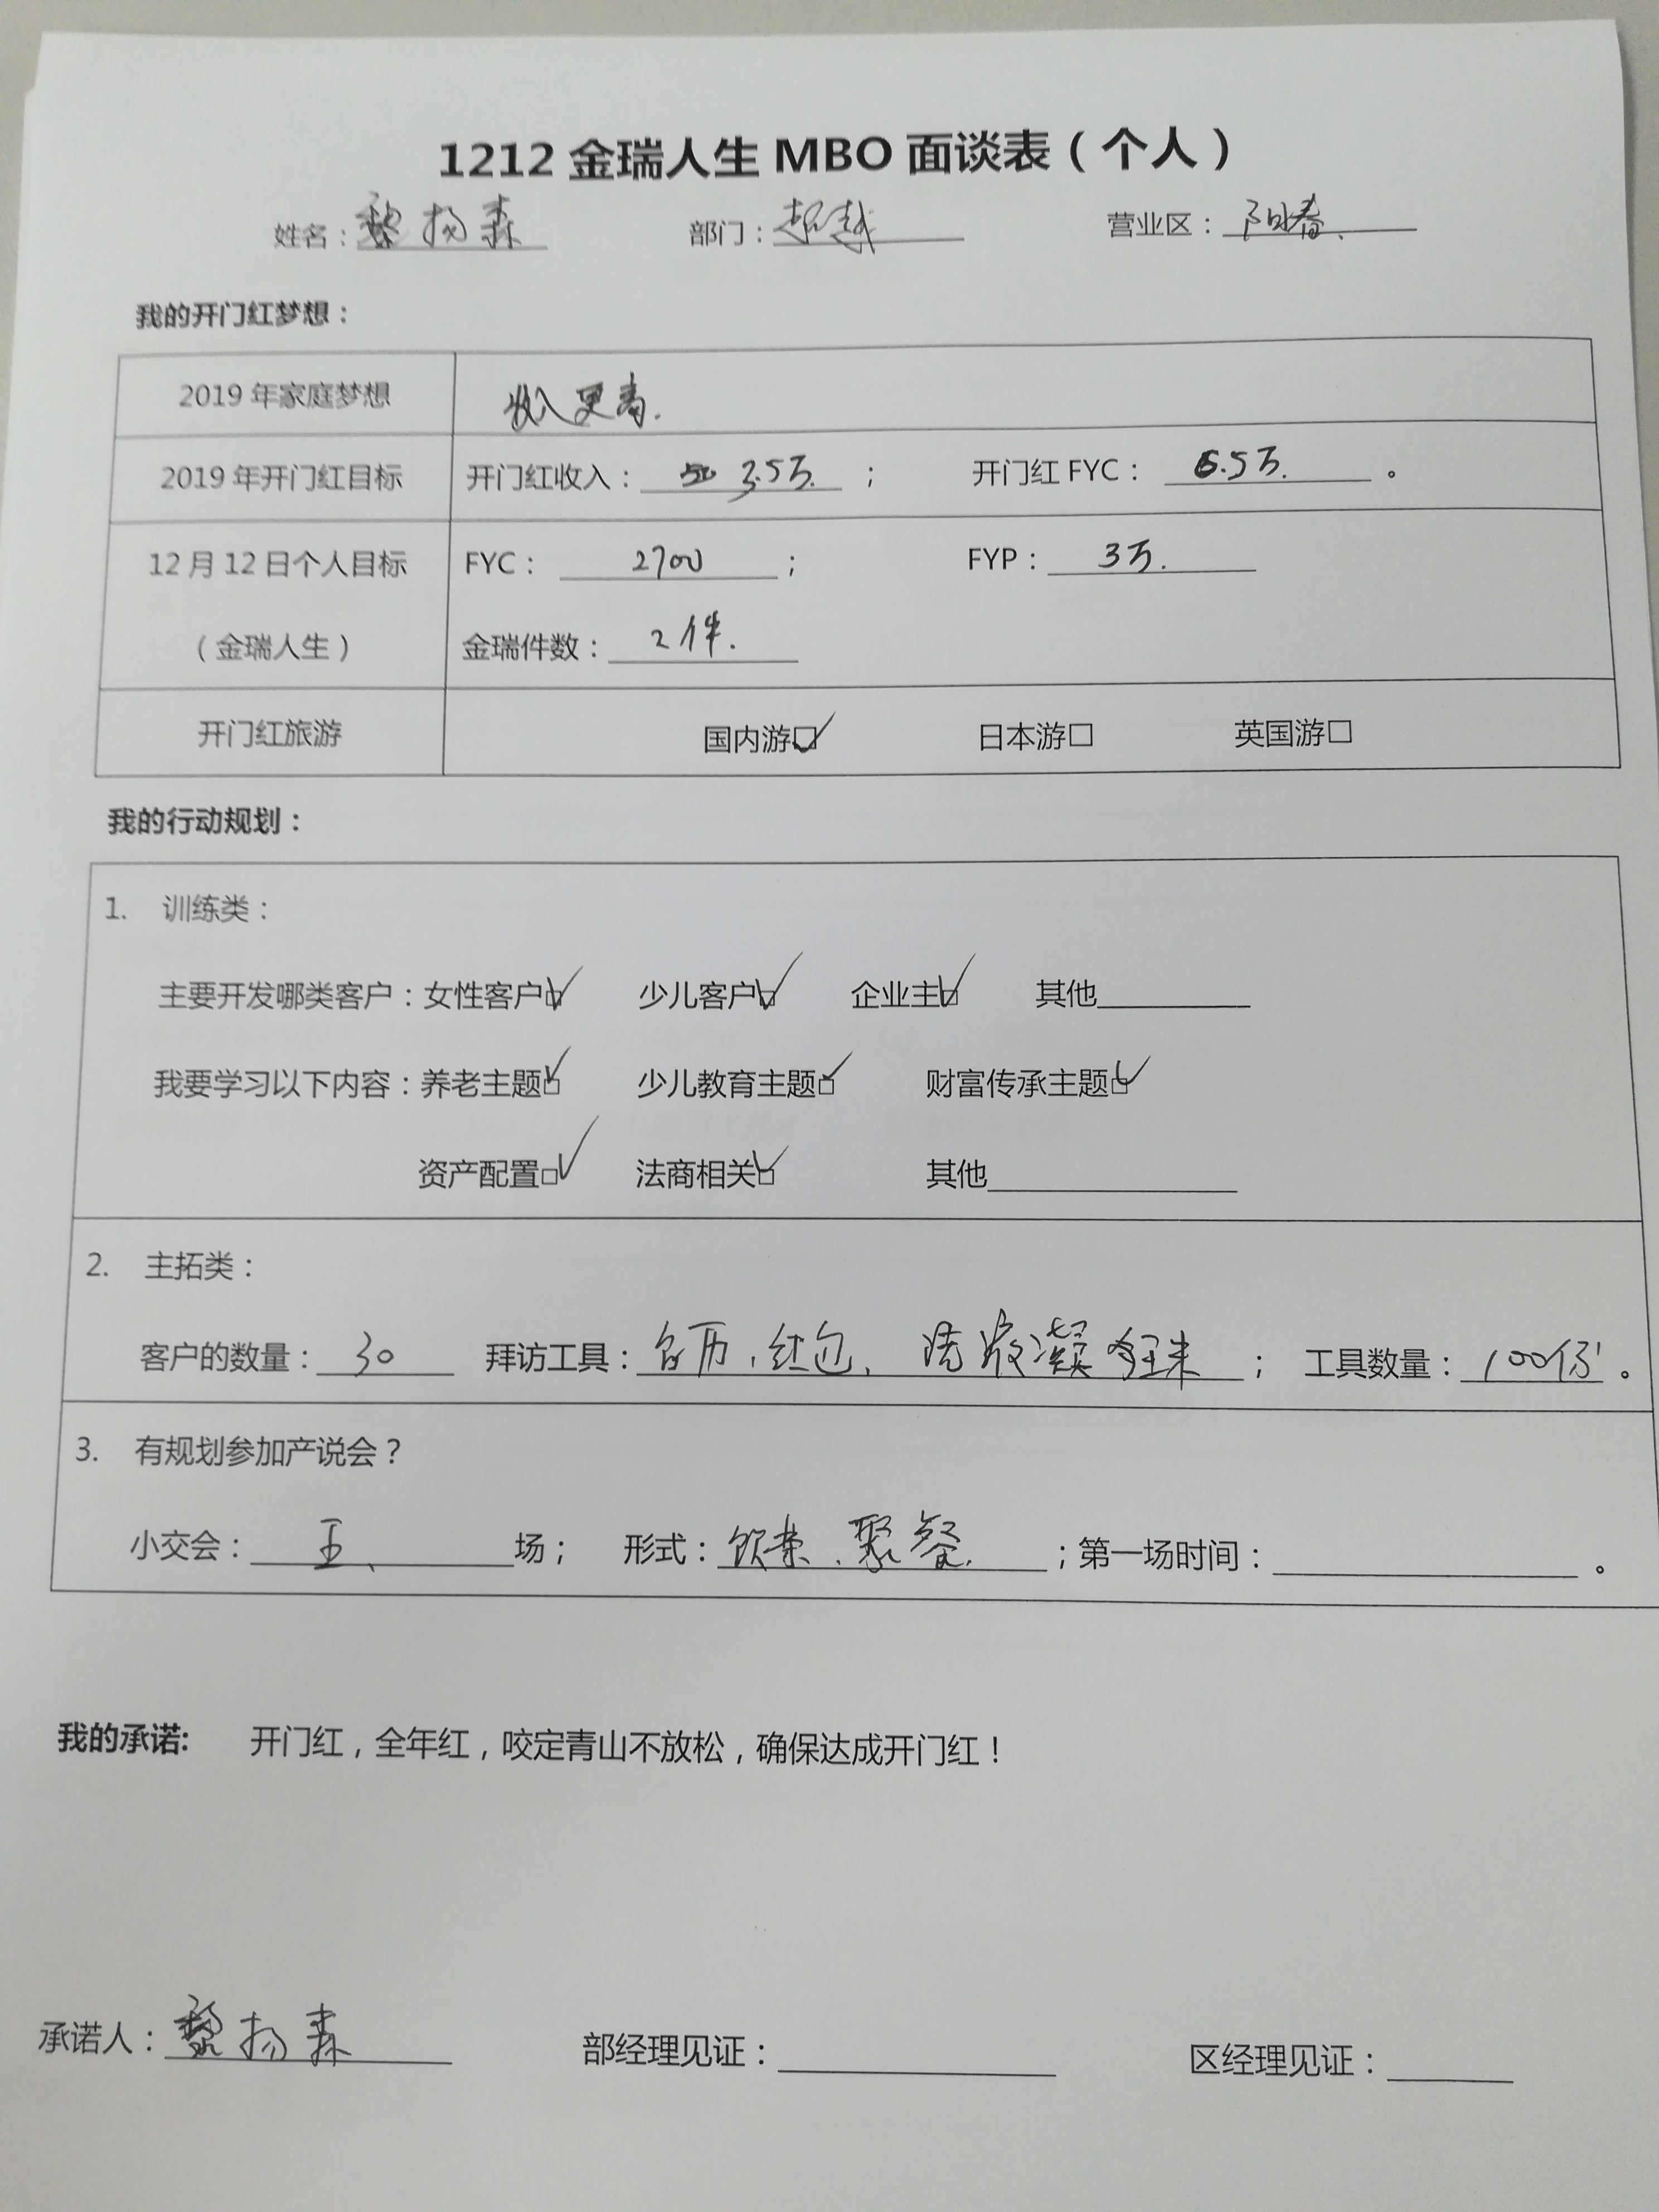 1212 金瑞人生 MBO 面谈表（个人）
姓名：黎扬森 部门：超越 营业区：阳春
我的开门红梦想：
2019 年家庭梦想 收入更高.
2019 年开门红目标 开门红收入： 3.5万. ； 开门红 FYC： 6.5万. 。
12 月 12 日个人目标 FYC： 2700 ； FYP： 3万.
（金瑞人生） 金瑞件数： 2件.
开门红旅游 国内游☑ 日本游□ 英国游□
我的行动规划：
1. 训练类：
主要开发哪类客户：女性客户☑ 少儿客户☑ 企业主☑ 其他
我要学习以下内容：养老主题☑ 少儿教育主题☑ 财富传承主题☑
资产配置☑ 法商相关☑ 其他
2. 主拓类：
客户的数量： 30 拜访工具：台历、红包、洗衣凝珠 ； 工具数量：100份 。
3. 有规划参加产说会？
小交会： 五、 场； 形式：饮茶、聚餐. ；第一场时间： 。
我的承诺: 开门红，全年红，咬定青山不放松，确保达成开门红！
承诺人：黎扬森 部经理见证： 区经理见证：